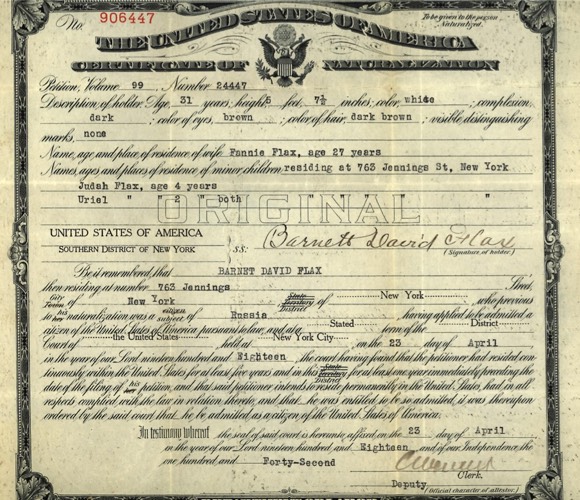 No. 906447
To be given to the person Naturalized.
THE UNITED STATES OF AMERICA
CERTIFICATE OF NATURALIZATION
Petition, Volume 99 , Number 24447
Description of holder, Age, 31 years, height, 5 feet, 7½ inches, color, white ; complexion,
dark ; color of eyes, brown ; color of hair, dark brown ; visible distinguishing
marks, none
Name, age and place of residence of wife Fannie Flax, age 27 years
Names, ages and places of residence of minor children residing at 763 Jennings St, New York
Judah Flax, age 4 years
Uriel " " 2 " both " " " " "
ORIGINAL
UNITED STATES OF AMERICA
SOUTHERN DISTRICT OF NEW YORK
ss:
Barnett David Flax
(Signature of holder)
Be it remembered, that BARNET DAVID FLAX
then residing at number 763 Jennings Street
City Town of New York State of New York , who previous
to his her naturalization was a citizen subject of Russia , having applied to be admitted a
citizen of the United States of America pursuant to law, and at a Stated term of the District
Court of the United States held at New York City on the 23 day of April
in the year of our Lord nineteen hundred and Eighteen , the court having found that the petitioner had resided con-
tinuously within the United States for at least five years and in this State for at least one year immediately preceding the
date of the filing of his her petition, and that said petitioner intends to reside permanently in the United States, had in all
respects complied with the law in relation thereto, and that he was entitled to be so admitted, it was thereupon
ordered by the said court that he be admitted as a citizen of the United States of America.
In testimony whereof the seal of said court is hereunto affixed on the 23 day of April
in the year of our Lord nineteen hundred and Eighteen , and of our Independence the
one hundred and Forty-Second
Clerk.
Deputy (Official character of attester)